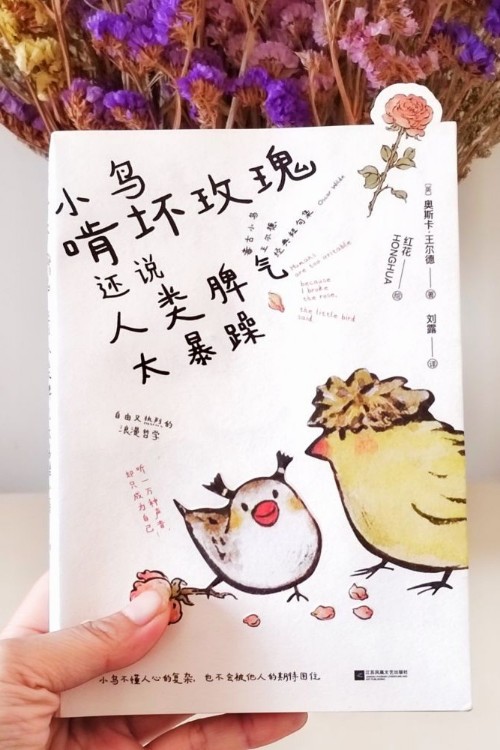 小鸟
啃坏玫瑰
还说
人类脾气
太暴躁
蠢古小鸟
王尔德
经典短句集
Oscar Wilde
Humans
are too irritable
because
I broke
the rose,
the little bird
said
[英] 奥斯卡·王尔德——著
红花
HONGHUA——绘
刘露——译
自由又热烈的
浪漫哲学
听一万种声音,
却只成为自己!
小鸟不懂人心的复杂,也不会被他人的期待困住。
江苏凤凰文艺出版社